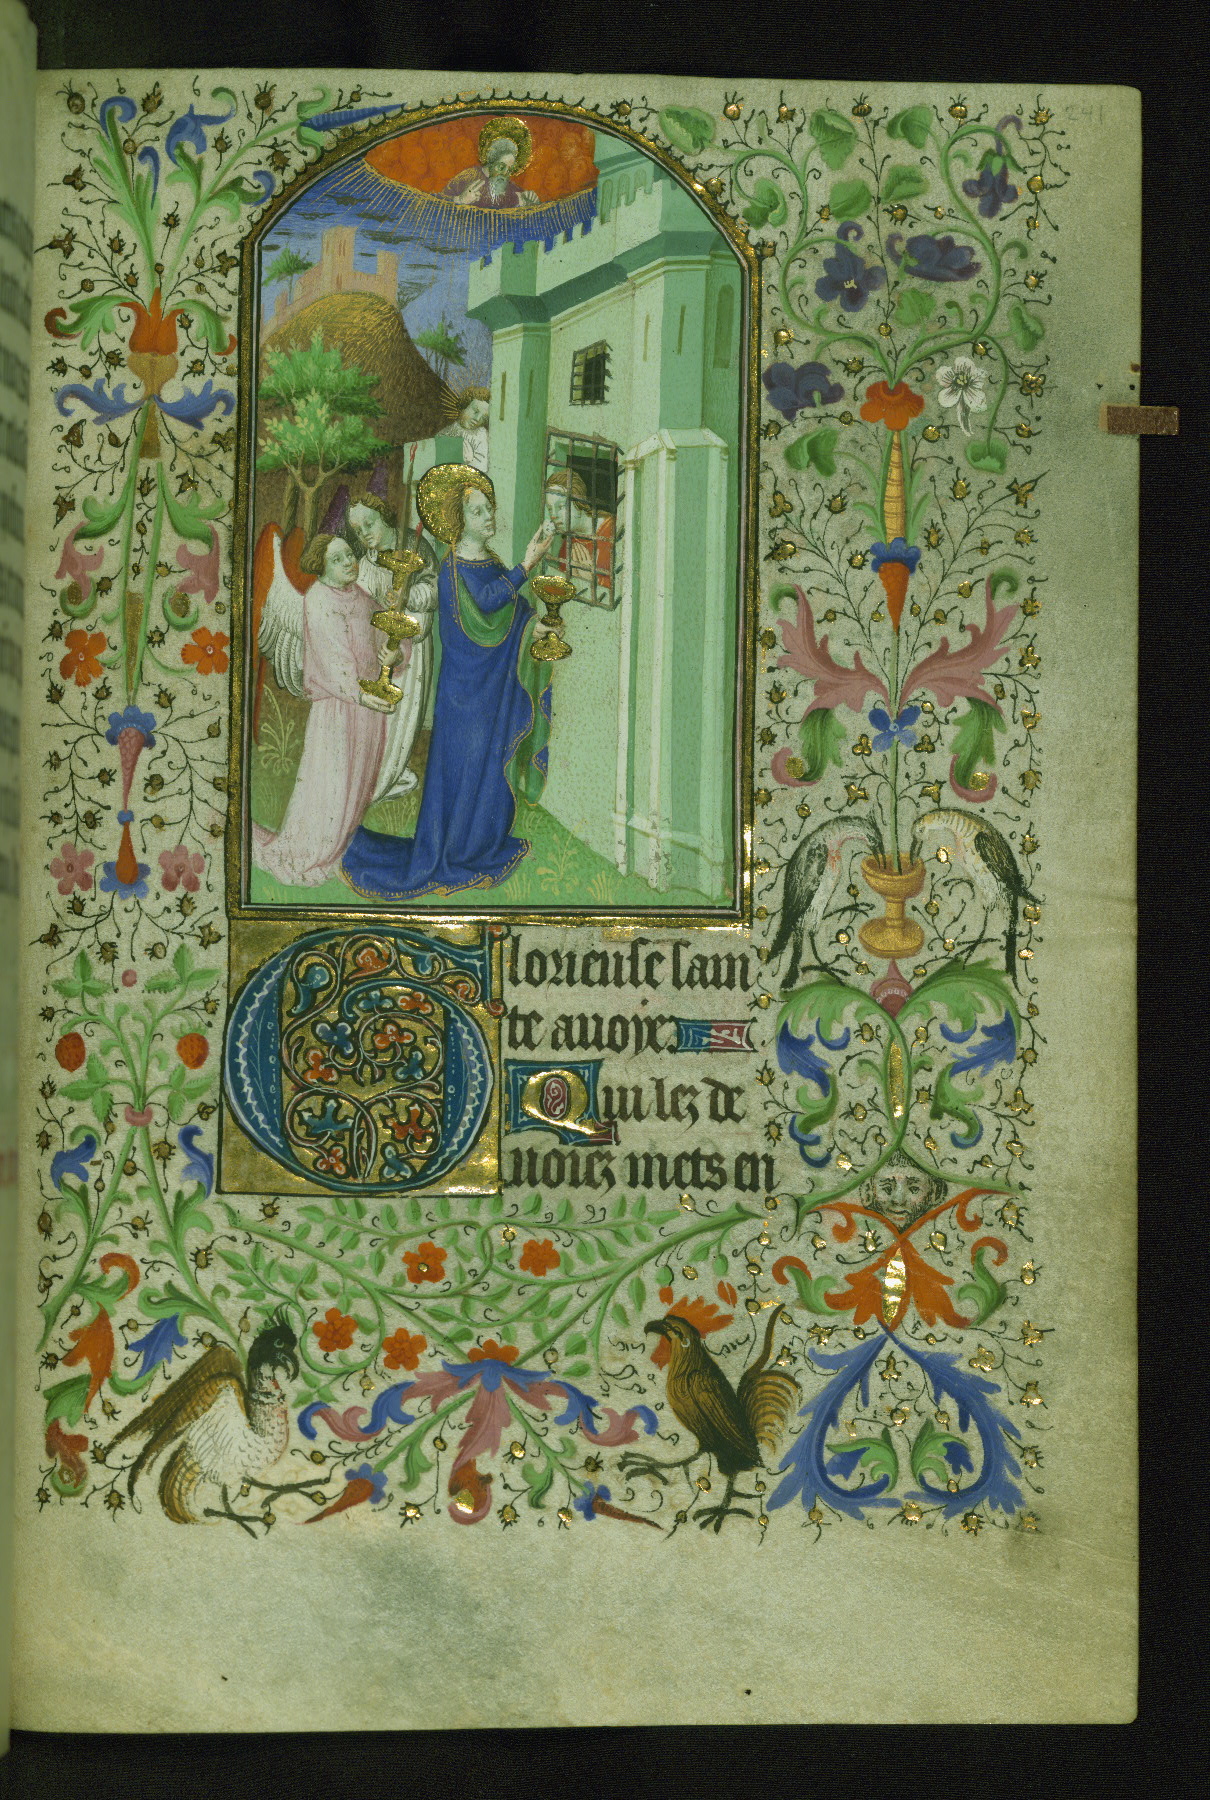 241
Glorieuse sain
te avoye
Qui lez de
voiez mets en